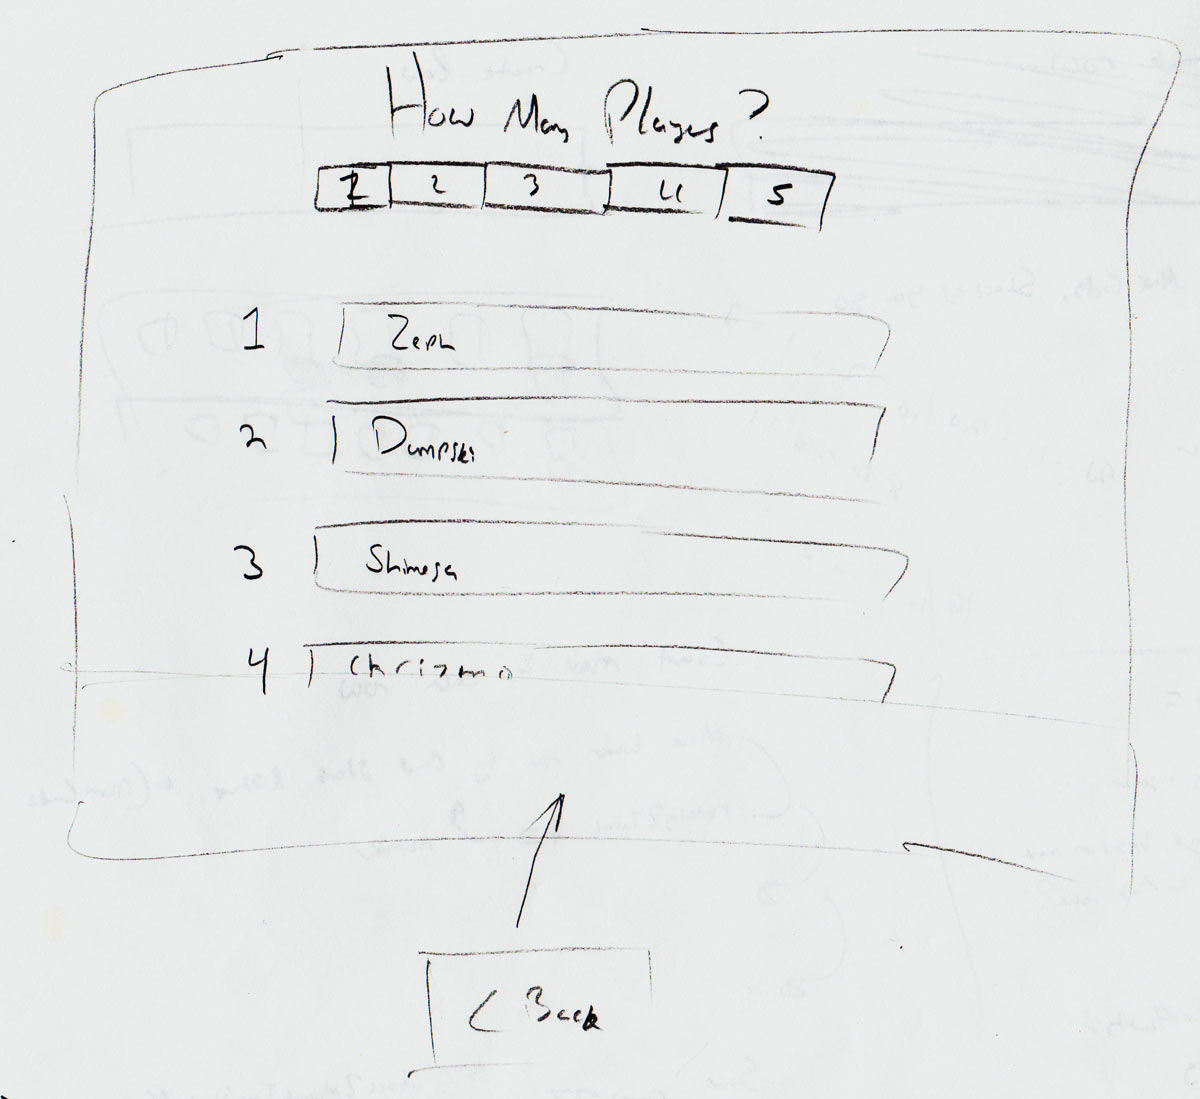 How Many Players?
1 2 3 4 5
1 Zeph
2 Dumpski
3
4 Chrizmo
< Back